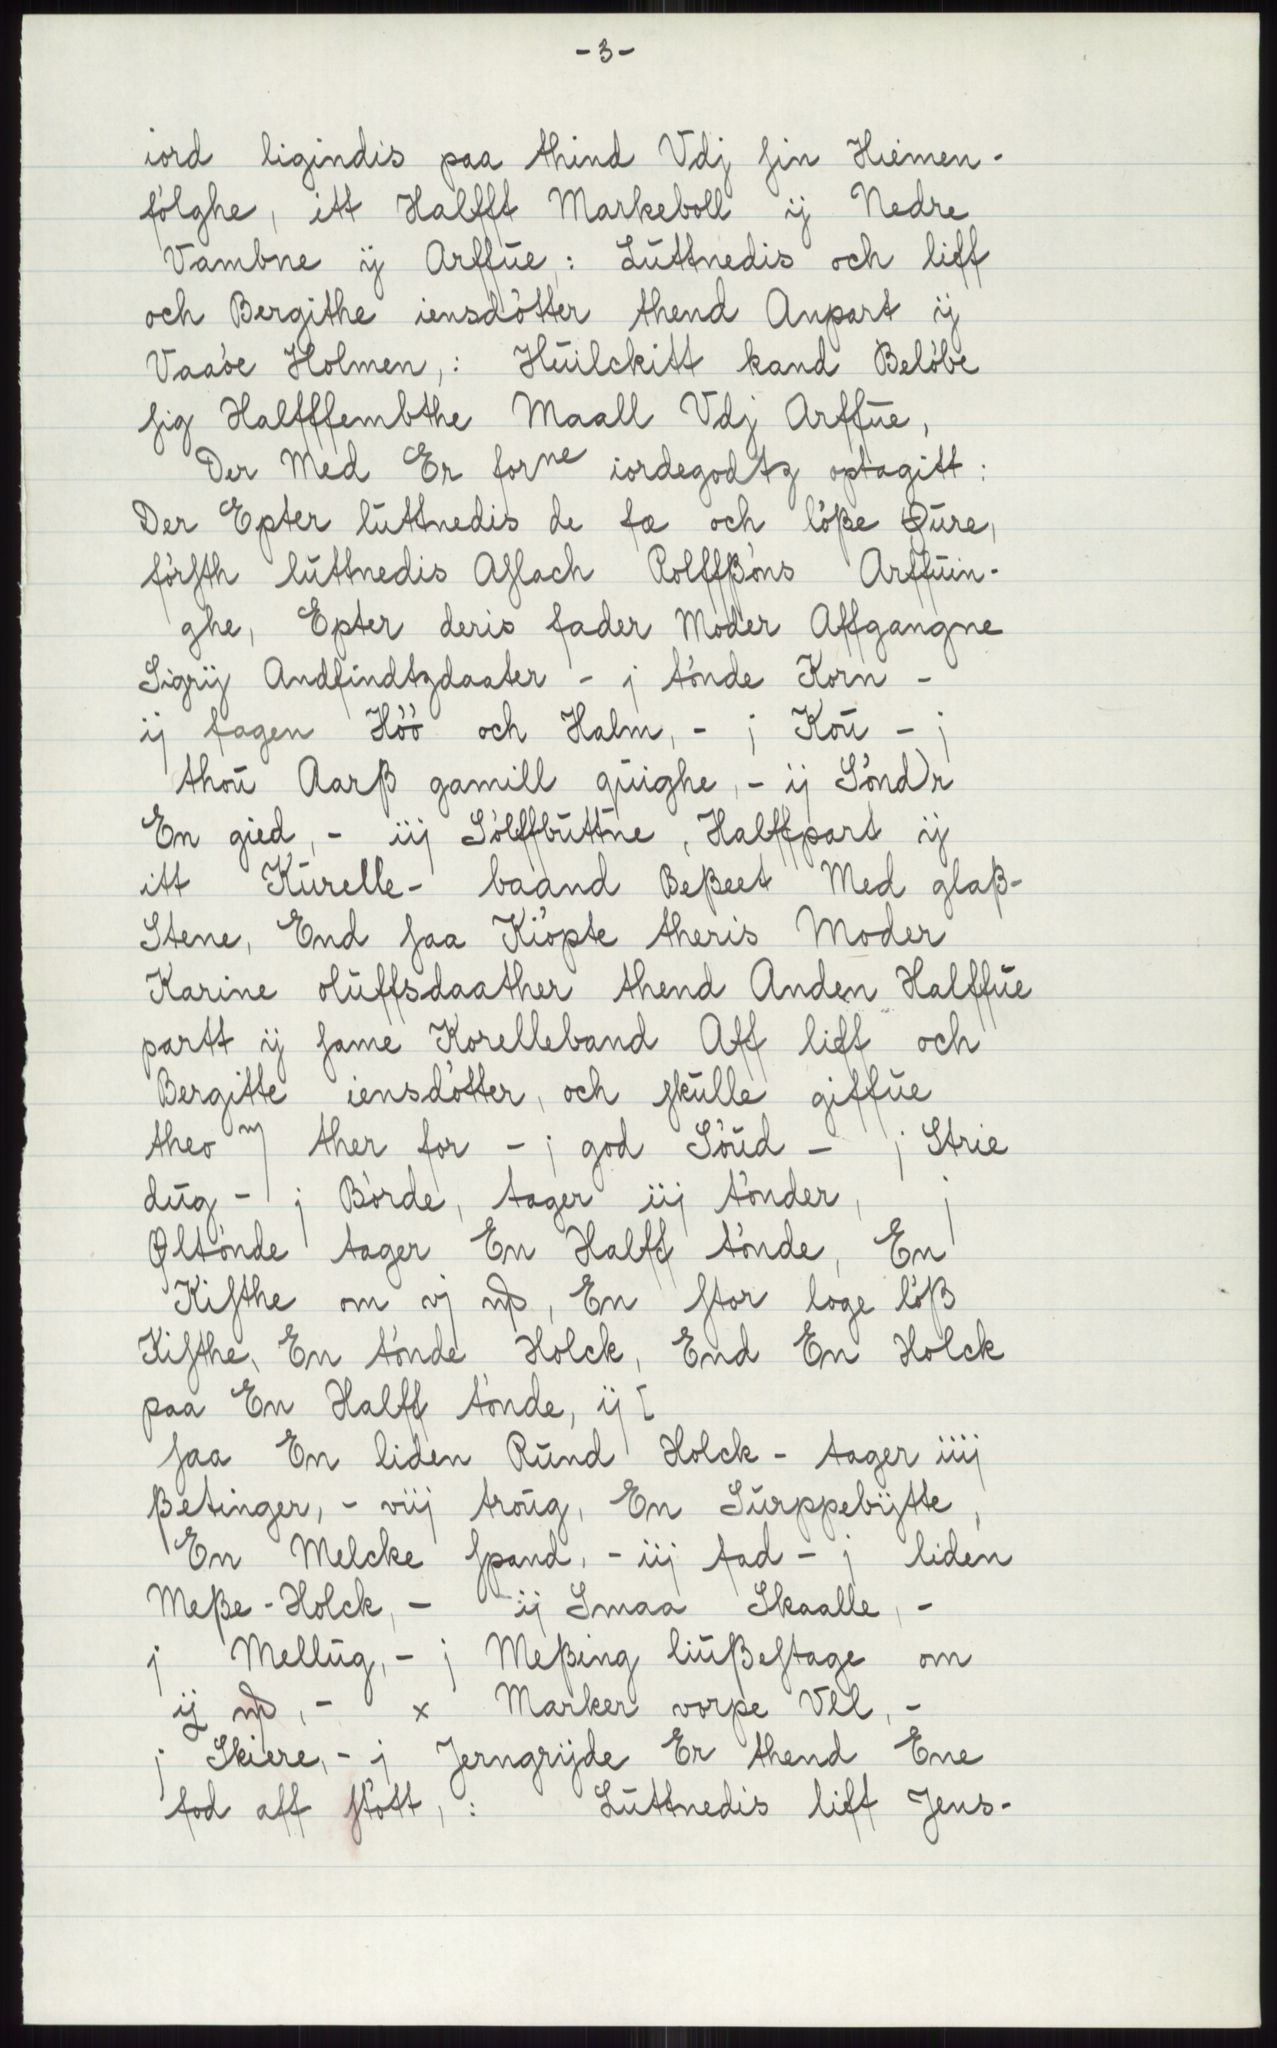 - 3 -
iord ligindis paa thind Vdj sin Hiemen-
følghe, itt Halfft Markeboll ij Nedre
Vambne ij Arffue,: Luttnedis och lieff
och Bergithe iensdøtter thend Anpart ij
Vaaøe Holmen,: Huilckitt kand Beløbe
sig Halffffembthe Maall Vdj Arffue,
Der Med Er forne iordegodtz optagitt:
Der Epter luttnedis de fæ och løsse Øure,
førsth luttnedis Aslach Rolffßøns Arffuin-
ghe, Epter deris fader Moder Affgangne
Sigrij Andfindtzdaater - j tønde Korn -
ij fagen Høø och Halm, - j Kou - j
thou Aarß gamill quighe, - ij Sønd)r
En gied, - iij Sølffbuttne, Halffpart ij
itt Kurelle- baand Beßeet Med glaß-
Stene, End saa Kiøpte theris Moder
Karine oluffsdaather thend Anden Halffue
partt ij same Korelleband Aff lieff och
Bergitte iensdøtter, och skulle giffue
theo m ther for - j god Søud - j Strie
dug - j Børde, tager iij tønder, j
Øltønde tager En Halff tønde, En
Kisthe om vj ɱ, En stor loge løß
Kisthe, En tønde Holck, End En Holck
paa En Halff tønde, ij [
saa En liden Rund Holck - tager iiij
ßetinger, - viij troug, En Surppebijtte,
En Melcke spand, - iij fad - j liden
Meße-Holck, - ij Smaa Skaalle, -
j Mellug, - j Meßing liußestage om
ij ɱ, - x Marker vorpe Vll, -
j Skiere, - j Jerngrijde Er thend Ene
fod aff støtt,: Luttnedis lieff Jens-